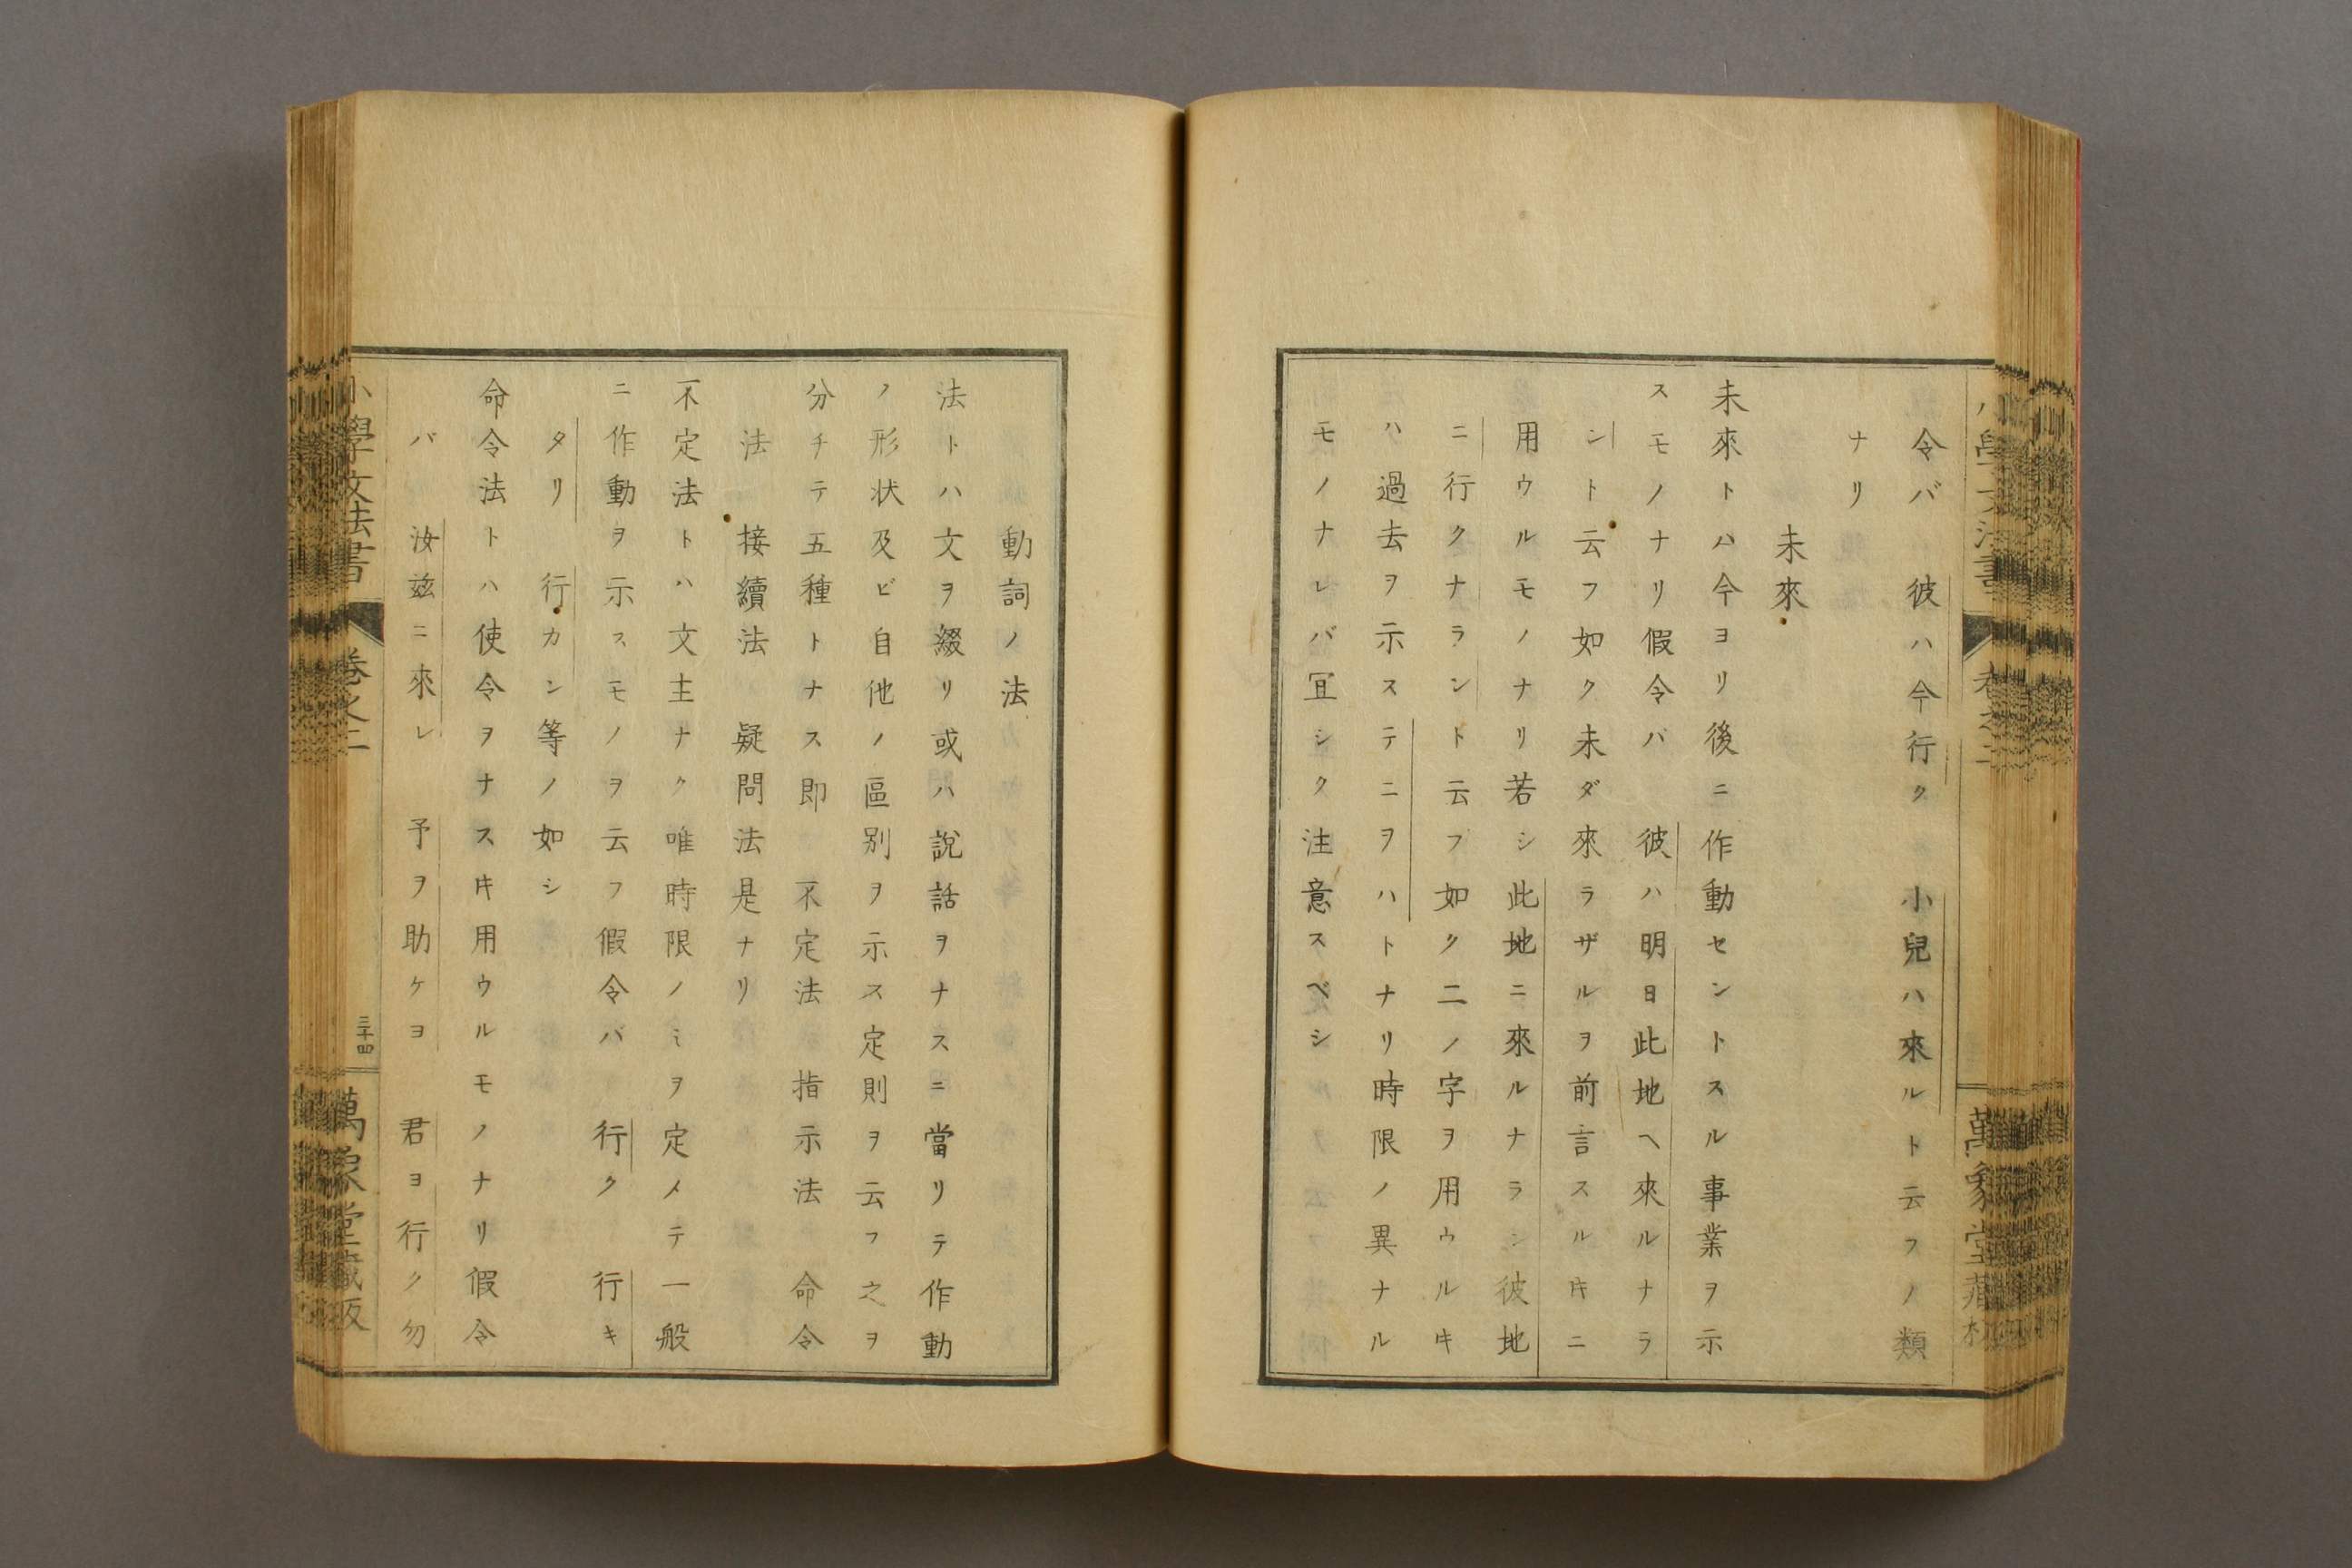 令バ　彼ハ今行ク　小兒ハ來ルト云フノ類
ナリ
未來
未來トハ今ヨリ後ニ作動セントスル事業ヲ示
スモノナリ假令バ　彼ハ明日此地ヘ來ルナラ
ント云フ如ク未ダ來ラザルヲ前言スルキニ
用ウルモノナリ若シ此地ニ來ルナラン彼地
ニ行クナラント云フ如ク二ノ字ヲ用ウルキ
ハ過去ヲ示ステニヲハトナリ時限ノ異ナル
モノナレバ冝シク注意スベシ
動詞ノ法
法トハ文ヲ綴リ或ハ說話ヲナスニ當リテ作動
ノ形状及ビ自他ノ區別ヲ示ス定則ヲ云フ之ヲ
分チテ五種トナス即　不定法　指示法　命令
法　接續法　疑問法是ナリ
不定法トハ文主ナク唯時限ノミヲ定メテ一般
ニ作動ヲ示スモノヲ云フ假令バ　行ク　行キ
タリ　行カン等ノ如シ
命令法トハ使令ヲナスキ用ウルモノナリ假令
バ　汝玆ニ來レ　予ヲ助ケヨ　君ヨ行ク勿
小學文法書　卷之二　三十四　萬象堂藏版